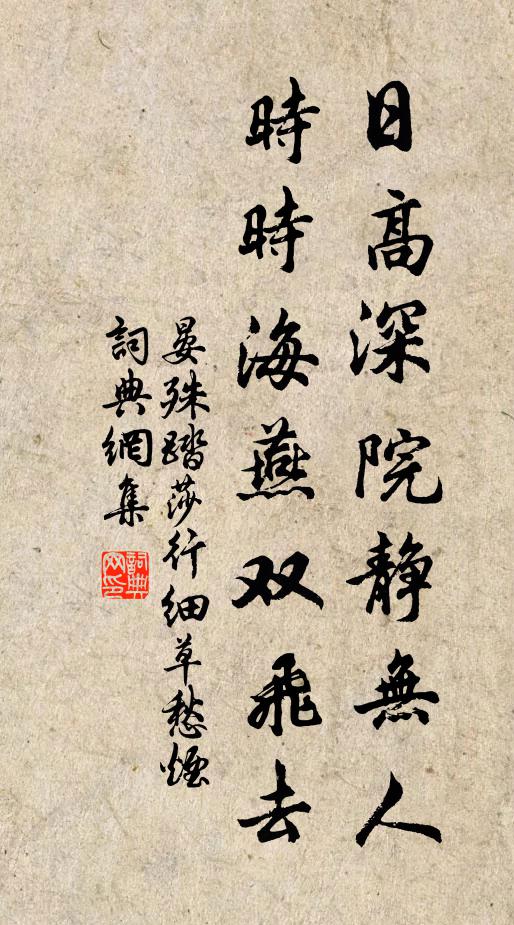 日高深院静無人
時時海燕双飛去
晏殊踏莎行細草愁煙
詞典網集
詞典网印